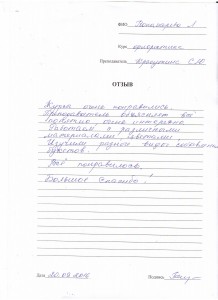 ФИО Пономарева Л
Курс флористика
Преподаватель
ОТЗЫВ
Курсы очень понравились.
Преподаватель объясняет все
понятно, очень интересно.
Работаем с различными
материалами, цветами.
Изучили разные виды
букетов.
Всё понравилось.
Большое спасибо!
Дата
Подпись